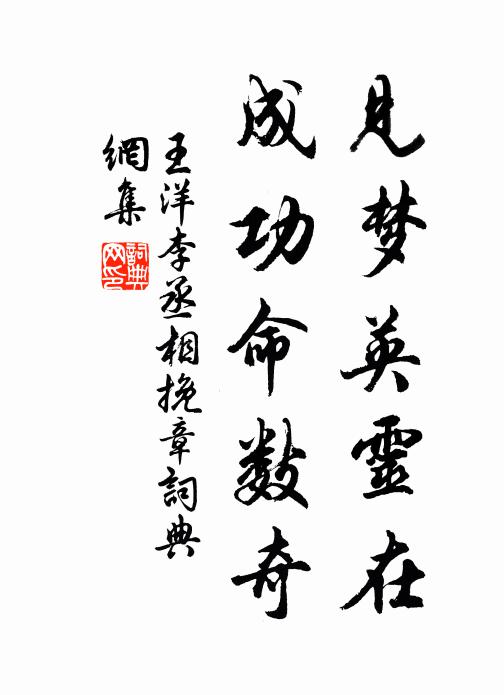 见梦英靈在
成功命数奇
王洋李丞相挽章詞典
網集
詞典
网印